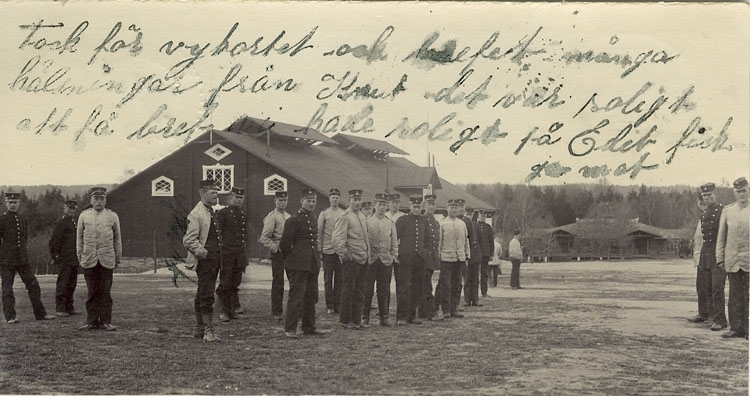 Tack för vykortet och brefet många
hälsningar från Knut det var roligt
att få bref hade roligt på Edit fick